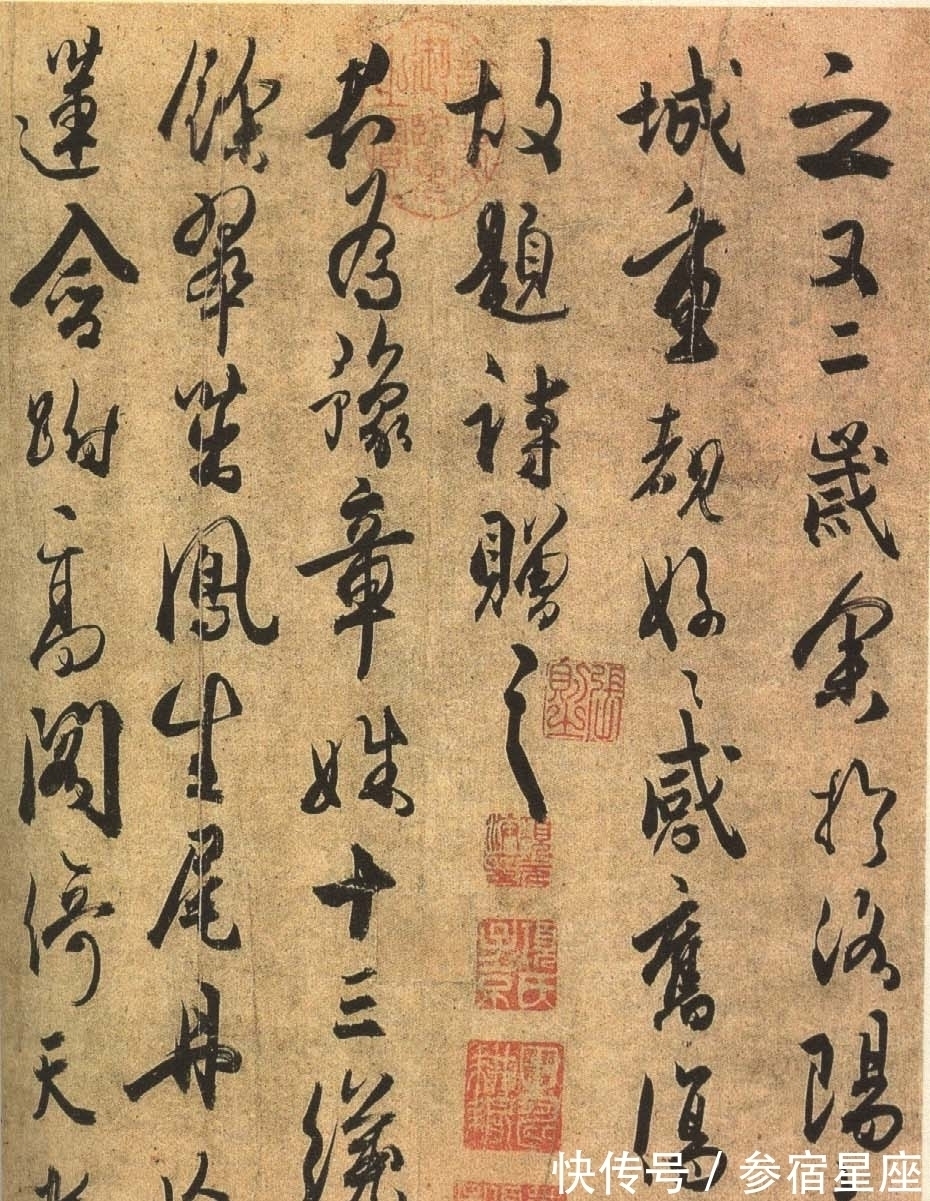 之又二歲余於洛陽
城重覩好〻感舊傷
故題詩贈之
君為豫章姝十三纔
餘翠茁鳳生尾丹
蓮含跗高閣倚天
快传号 / 参宿星座